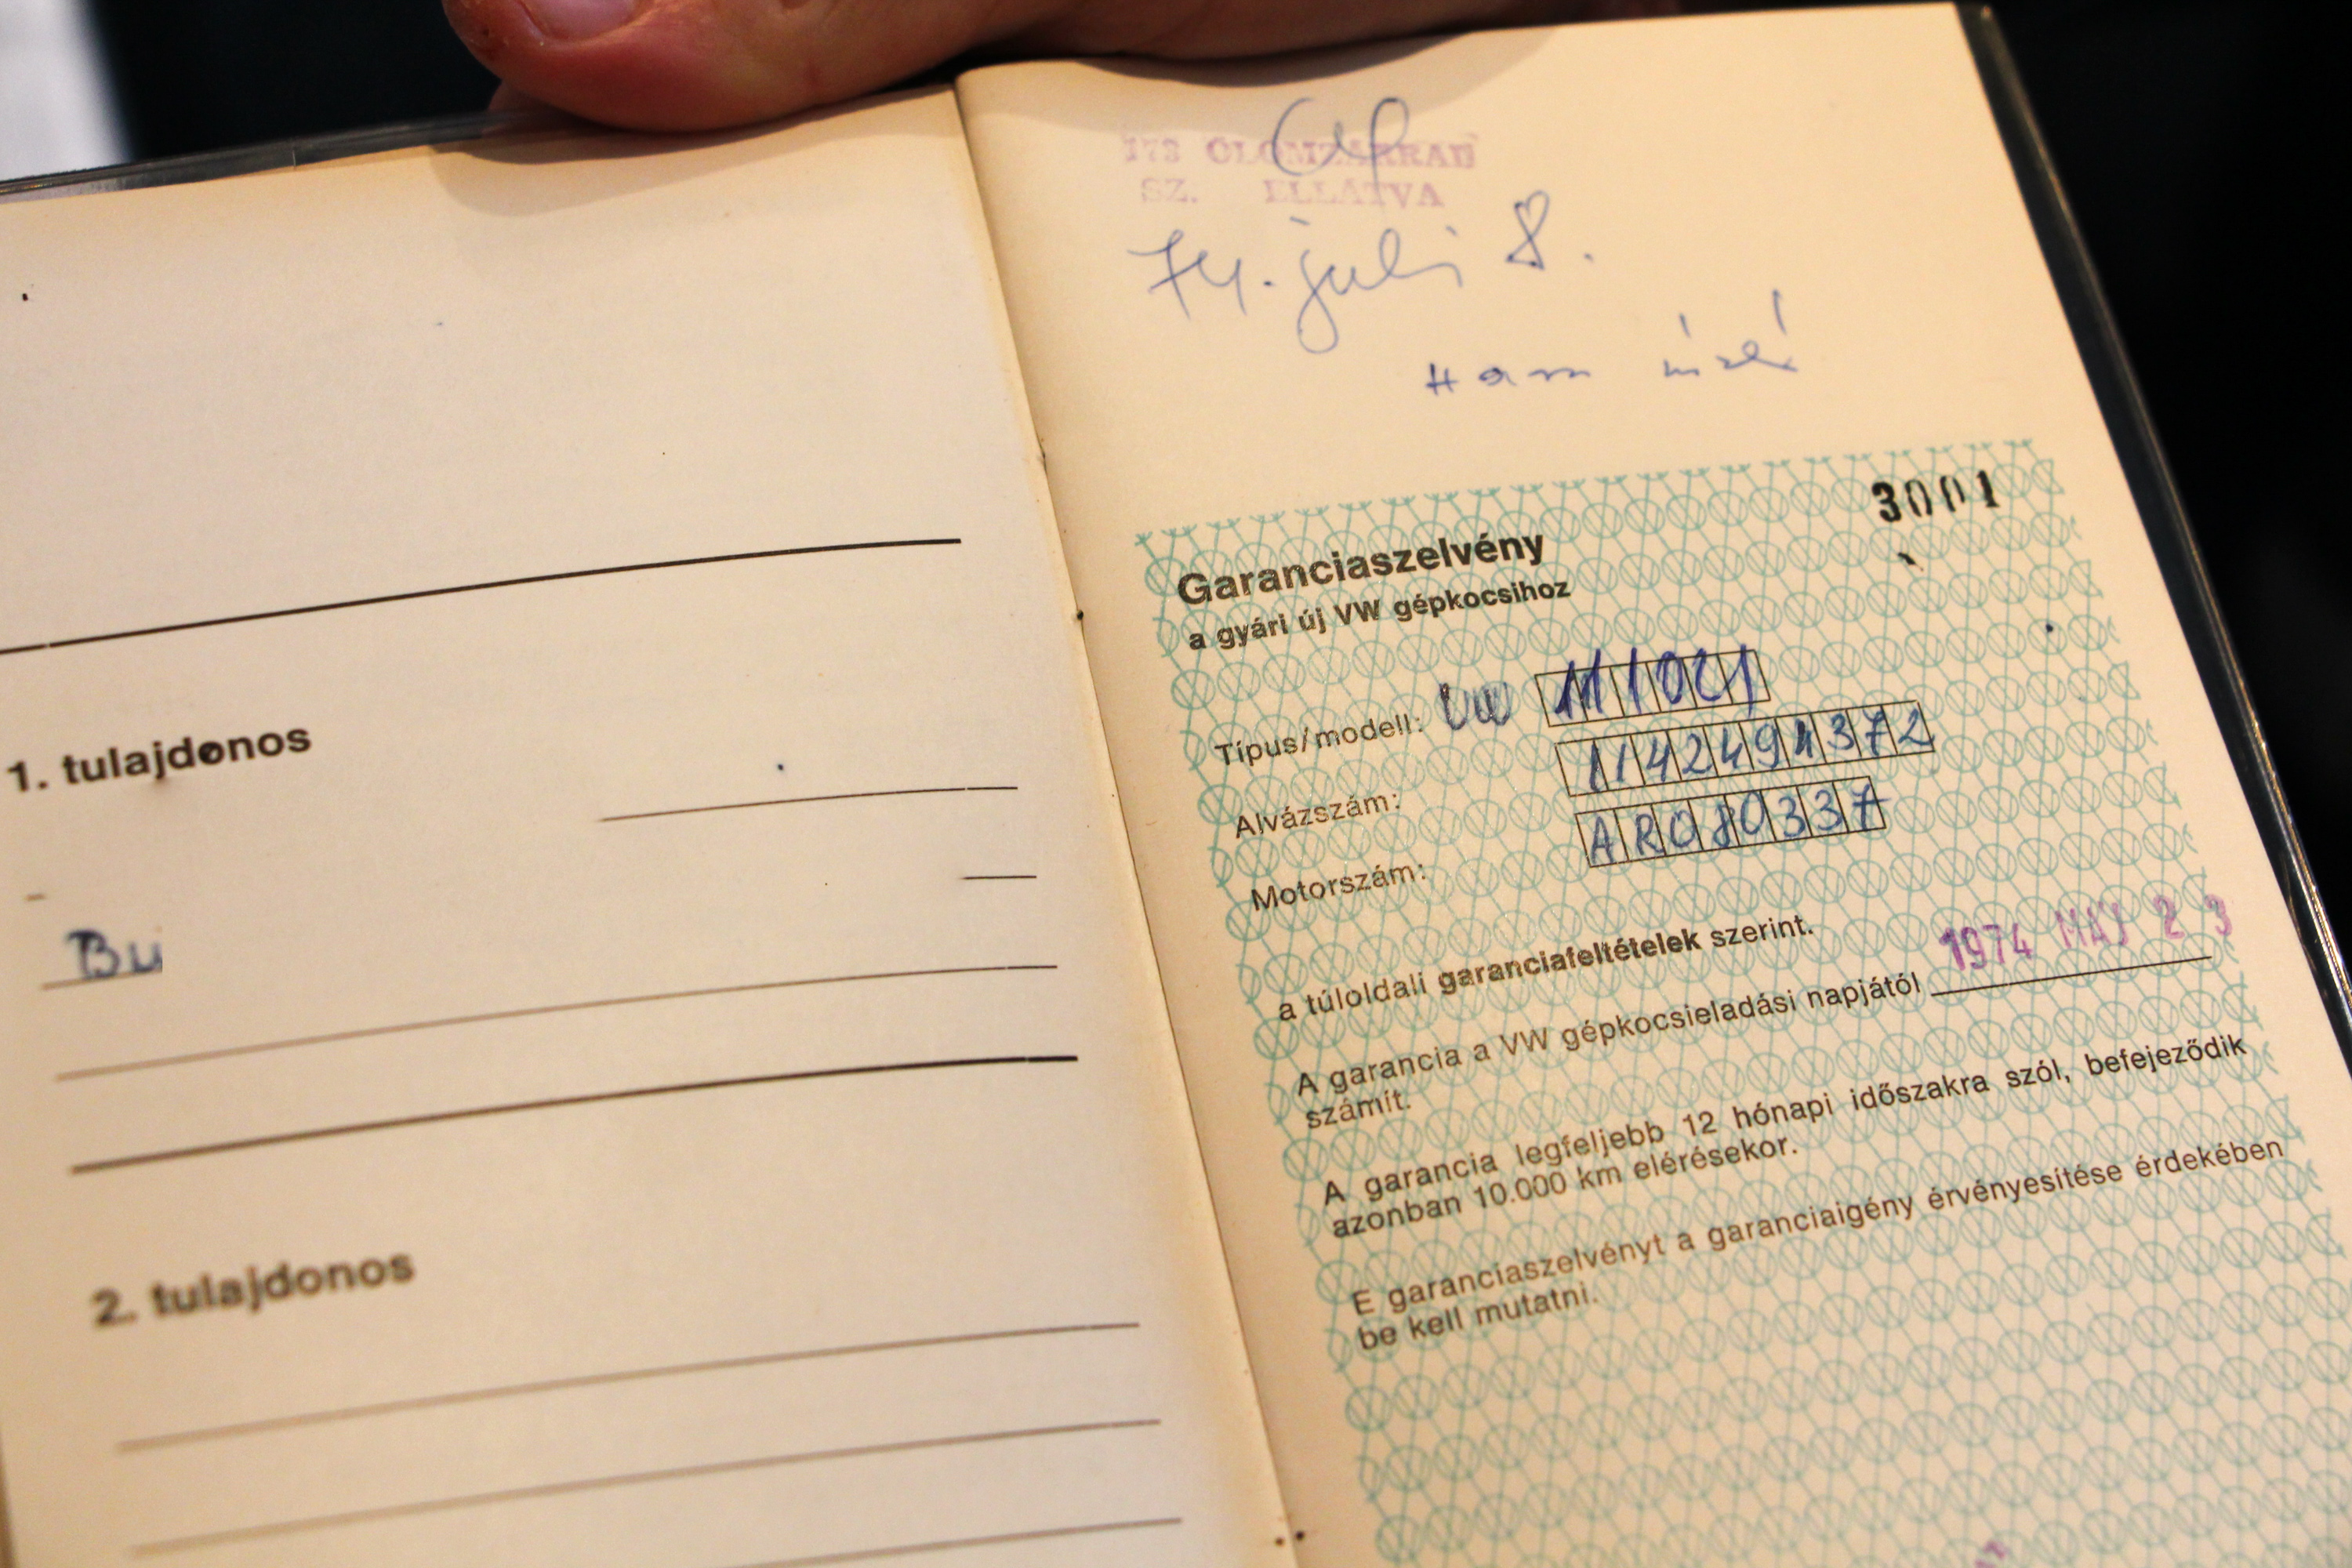 1. tulajdonos
Bu
2. tulajdonos
173 ÓLOMZÁRRAL
SZ. ELLÁTVA
74. juli 8.
3001
Garanciaszelvény
a gyári új VW gépkocsihoz
Típus/modell: VW 111021
Alvázszám: 1142494372
Motorszám: AR080337
a túloldali garanciafeltételek szerint.
A garancia a VW gépkocsieladási napjától 1974 MÁJ 2 3
számít.
A garancia legfeljebb 12 hónapi időszakra szól, befejeződik
azonban 10.000 km elérésekor.
E garanciaszelvényt a garanciaigény érvényesítése érdekében
be kell mutatni.